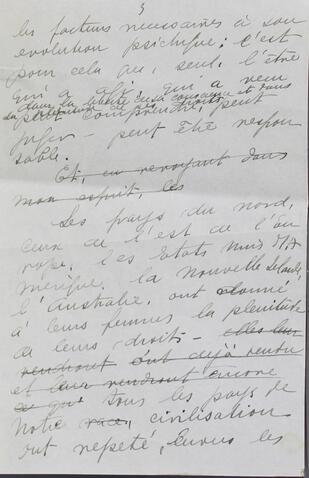 3
les facteurs necessaires à son
evolution psichique; c'est
pour cela que, seul, l'être
qui a agi, qui a vecu
dans la liberté de sa conscience et dans
la plenitude de ses droits
comprendre, peut
juger - peut être respon
sable.
Et, en revoyant dans
mon esprit, les
Les pays du nord,
ceux de l'est de l'Eu
rope, les Etats Unis d'A
merique, la Nouvelle Zelande,
l'Australie, ont donné
à leurs femmes la plenitude
de leurs droits - elles leur
rendront ont dejà rendu
et leur rendront encore
ce qu' tous les pays de
notre race, civilisation
ont repeté, envers les